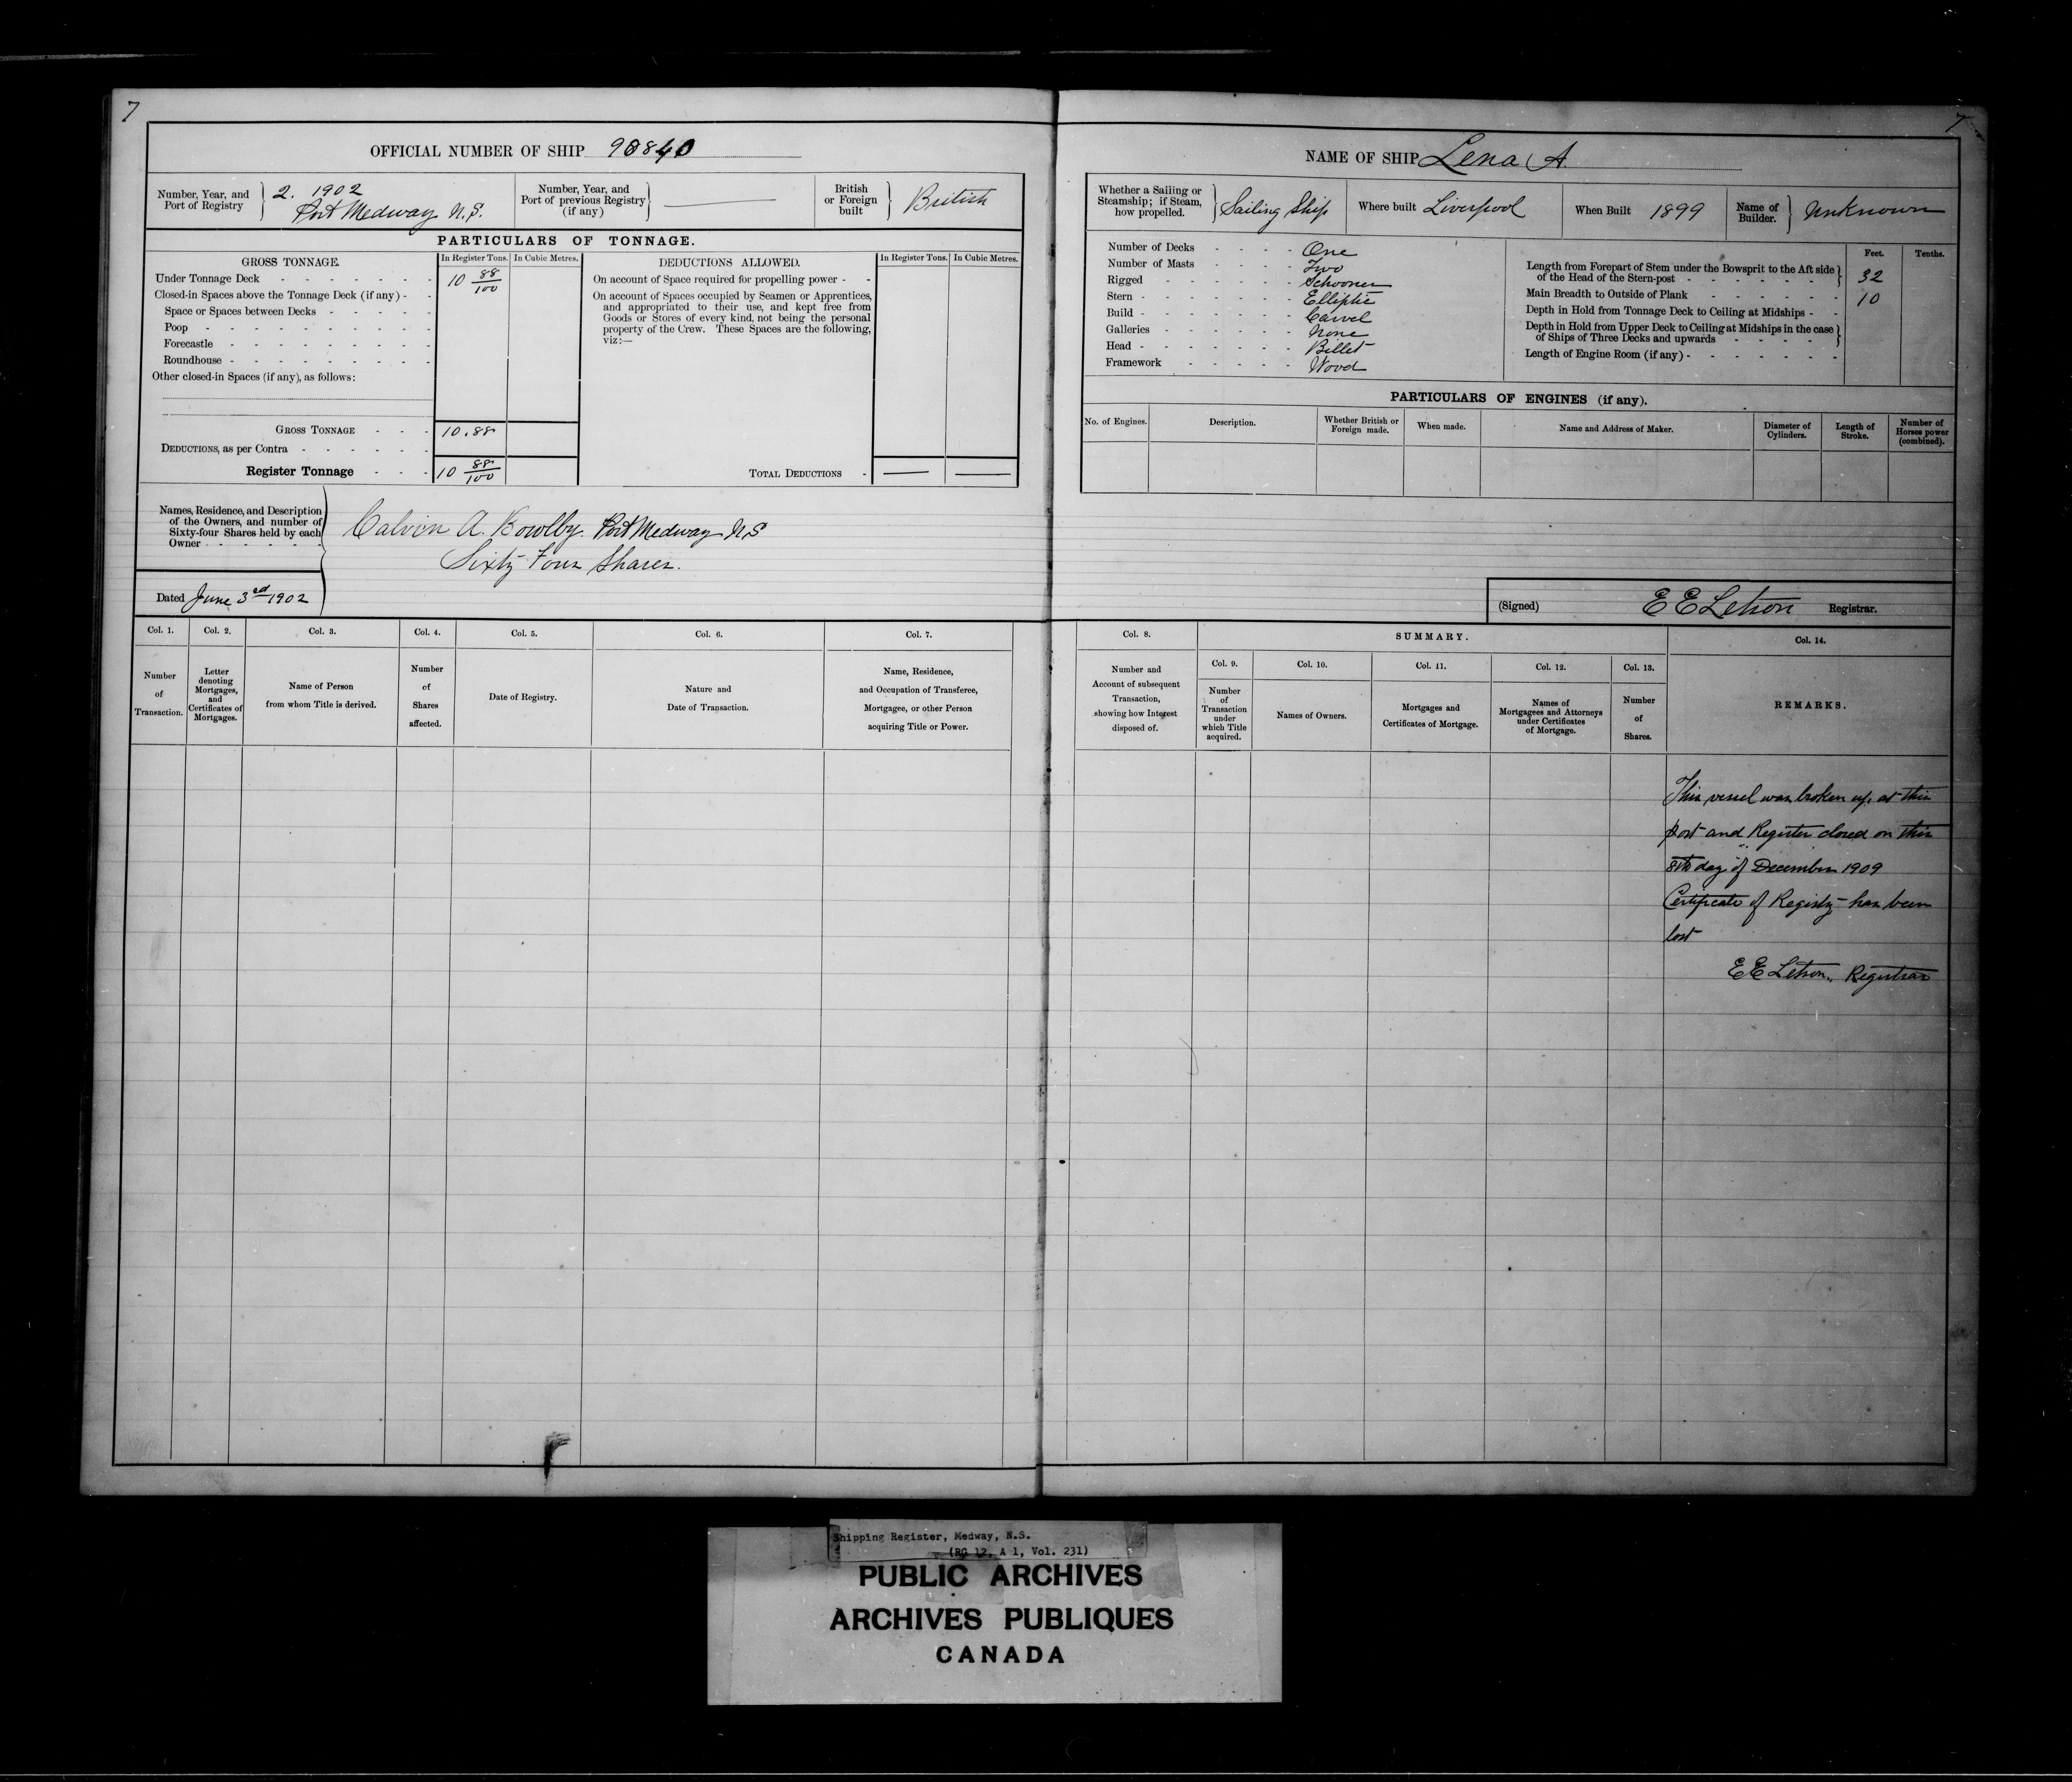 7
OFFICIAL NUMBER OF SHIP 90840
Number, Year, and Port of Registry } 2. 1902 Port Medway N.S.
Number, Year, and Port of previous Registry (if any) }
British or Foreign built } British
PARTICULARS OF TONNAGE.
GROSS TONNAGE. In Register Tons. In Cubic Metres.
Under Tonnage Deck - 10 88/100
Closed-in Spaces above the Tonnage Deck (if any) -
Space or Spaces between Decks -
Poop -
Forecastle -
Roundhouse -
Other closed-in Spaces (if any), as follows:
GROSS TONNAGE - 10.88
DEDUCTIONS, as per Contra -
Register Tonnage - 10 88/100
DEDUCTIONS ALLOWED. In Register Tons. In Cubic Metres.
On account of Space required for propelling power -
On account of Spaces occupied by Seamen or Apprentices,
and appropriated to their use, and kept free from
Goods or Stores of every kind, not being the personal
property of the Crew. These Spaces are the following,
viz:—
TOTAL DEDUCTIONS - — —
Names, Residence, and Description
of the Owners, and number of
Sixty-four Shares held by each
Owner -
Calvin A. Kowlby. Port Medway NS
Sixty Four Shares.
Dated June 3rd 1902
Col. 1. Number of Transaction.
Col. 2. Letter denoting Mortgages, and Certificates of Mortgages.
Col. 3. Name of Person from whom Title is derived.
Col. 4. Number of Shares affected.
Col. 5. Date of Registry.
Col. 6. Nature and Date of Transaction.
Col. 7. Name, Residence, and Occupation of Transferee, Mortgagee, or other Person acquiring Title or Power.
7
NAME OF SHIP Lena A.
Whether a Sailing or Steamship; if Steam, how propelled. } Sailing Ship
Where built Liverpool
When Built 1899
Name of Builder. } Unknown
Number of Decks - One
Number of Masts - Two
Rigged - Schooner
Stern - Elliptic
Build - Carvel
Galleries - None
Head - Billet
Framework - Wood
Feet. Tenths.
Length from Forepart of Stem under the Bowsprit to the Aft side of the Head of the Stern-post - 32
Main Breadth to Outside of Plank - 10
Depth in Hold from Tonnage Deck to Ceiling at Midships -
Depth in Hold from Upper Deck to Ceiling at Midships in the case of Ships of Three Decks and upwards -
Length of Engine Room (if any) -
PARTICULARS OF ENGINES (if any).
No. of Engines. Description. Whether British or Foreign made. When made. Name and Address of Maker. Diameter of Cylinders. Length of Stroke. Number of Horses power (combined).
(Signed) E E Letson Registrar.
Col. 8. Number and Account of subsequent Transaction, showing how Interest disposed of.
SUMMARY.
Col. 9. Number of Transaction under which Title acquired.
Col. 10. Names of Owners.
Col. 11. Mortgages and Certificates of Mortgage.
Col. 12. Names of Mortgagees and Attorneys under Certificates of Mortgage.
Col. 13. Number of Shares.
Col. 14. REMARKS.
This vessel was broken up at this
port and Register closed on this
8th day of December 1909
Certificate of Registry has been
lost
E E Letson, Registrar
Shipping Register, Medway, N.S.
(RG 12, A 1, Vol. 231)
PUBLIC ARCHIVES
ARCHIVES PUBLIQUES
CANADA